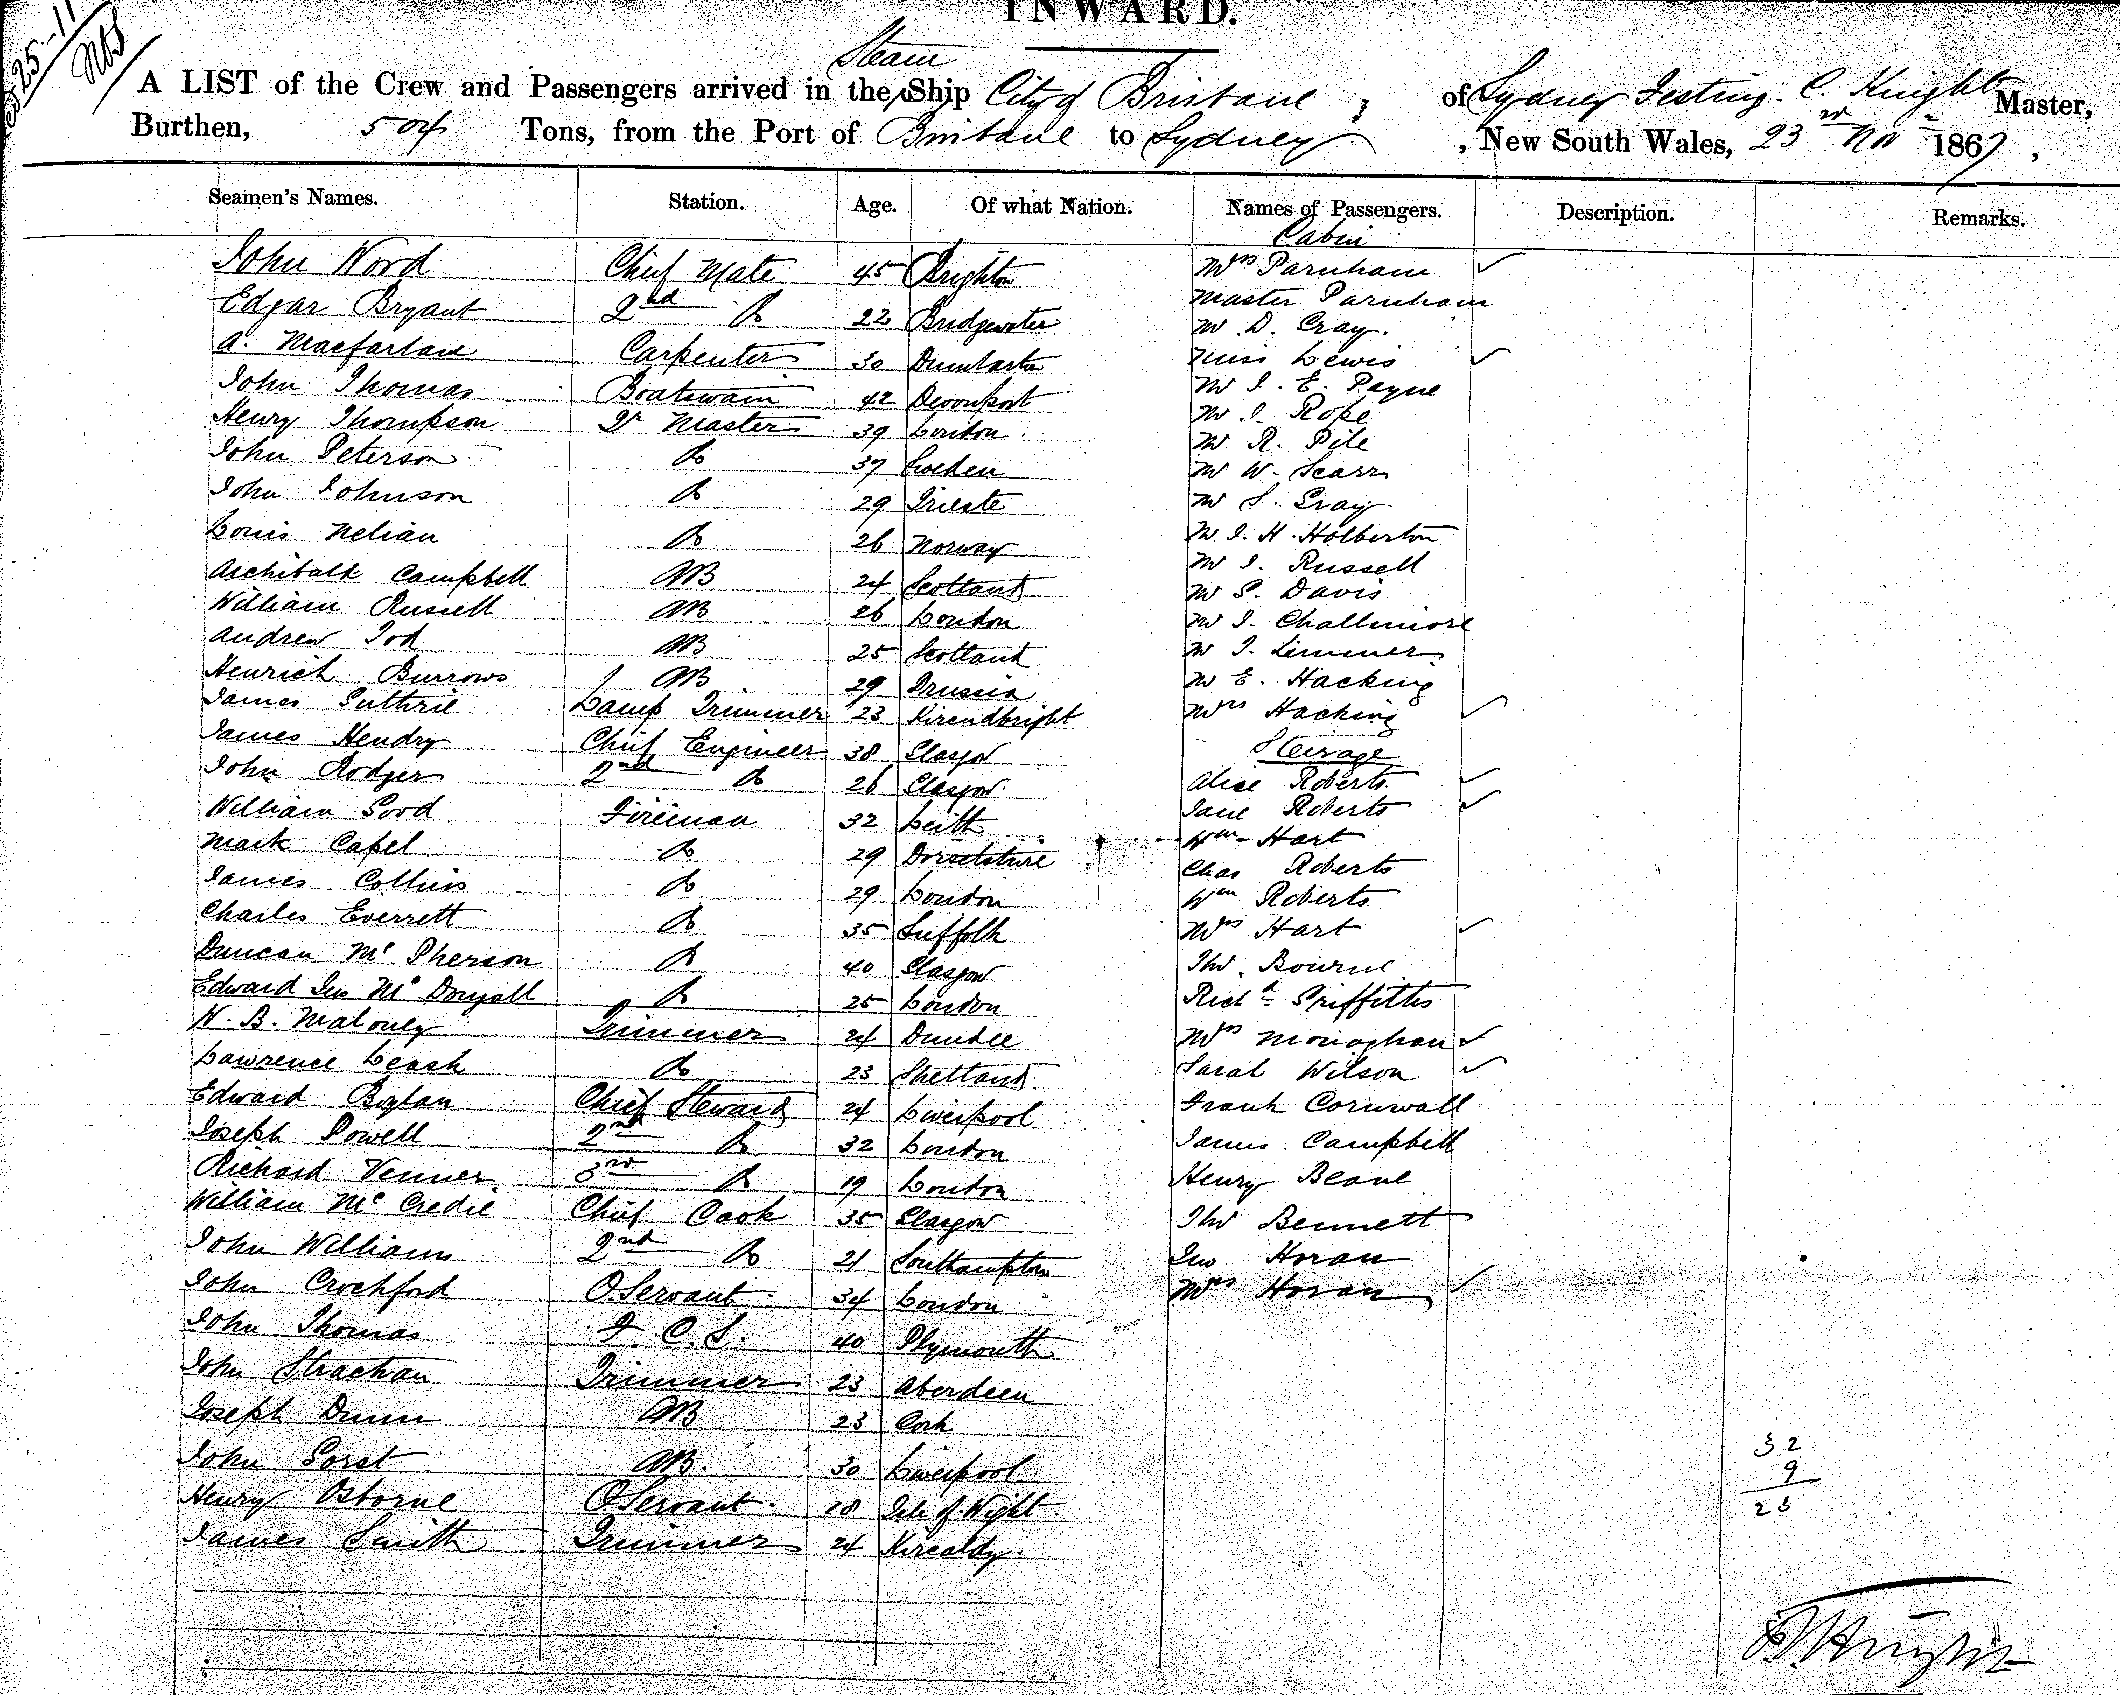 INWARD.
Steam
A LIST of the Crew and Passengers arrived in the Ship City of Brisbane, of Sydney Testing. C. Knight Master,
Burthen, 504 Tons, from the Port of Brisbane to Sydney, New South Wales, 23rd Nov 1867,
Seamen's Names. Station. Age. Of what Nation. Names of Passengers. Description. Remarks.
Cabin
John Word Chief Mate 45 Brighton Mrs Parnham
Edgar Bryant 2nd Do 22 Bridgwater Master Parnham
Mr D. Cray.
A. Macfarlane Carpenter 30 Dumbarton Miss Lewis
John Thomas Boatswain 42 Devonport Mr J. E. Payne
Henry Thompson Qr Master 39 London Mr J. Rope
John Peterson Do 37 Sweden Mr R. Pile
John Johnson Do 29 Trieste Mr W. Scarr
Mr S. Gray
Louis Nelian Do 26 Norway Mr J. H. Holberton
Archibald Campbell AB 24 Scotland Mr J. Russell
William Russell AB 26 London Mr S. Davis
Andrew Tod AB 25 Scotland Mr J. Challinore
Mr J. Limmer
Henrich Burrows AB 29 Prussia Mr E. Hacking
James Guthrie Lamp Trimmer 23 Kircudbright Mrs Hacking
James Hendry Chief Engineer 38 Glasgow Steerage
John Rodger 2nd Do 26 Glasgow Alice Roberts
William Good Fireman 32 Leith Jane Roberts
Mark Capel Do 29 Dorsetshire Wm Hart
Chas Roberts
James Collins Do 29 London Wm Roberts
Charles Everrett Do 35 Suffolk Mrs Hart
Duncan McPherson Do 40 Glasgow Thos. Bourne
Edward Jno McDougall Do 25 London Richd Griffiths
W. B. Malouly Trimmer 24 Dundee Mrs Monaghan
Lawrence Leask Do 23 Shetland Sarah Wilson
Edward Boylan Chief Steward 24 Liverpool Frank Cornwall
Joseph Powell 2nd Do 32 London James Campbell
Richard Venner 3rd Do 19 London Henry Beane
William McCredie Chief Cook 35 Glasgow Thos Bennett
John Williams 2nd Do 21 Southampton Jno Horan
John Crochford O.Servant 34 London Mrs Horan
John Thomas F. C. S. 40 Plymouth
John Strachan Trimmer 23 Aberdeen
Joseph Dunn AB 23 Cork
John Gorst AB. 30 Liverpool
Henry Osborne O Servant 18 Isle of Wight
James Smith Trimmer 24 Kircaldy
32
9
23